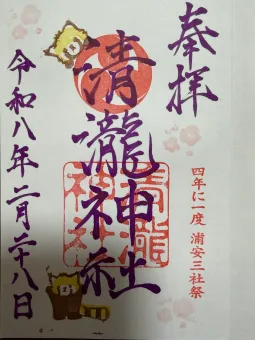 奉拝
四年に一度 浦安三社祭
清瀧神社
清瀧神社
令和八年二月二十八日